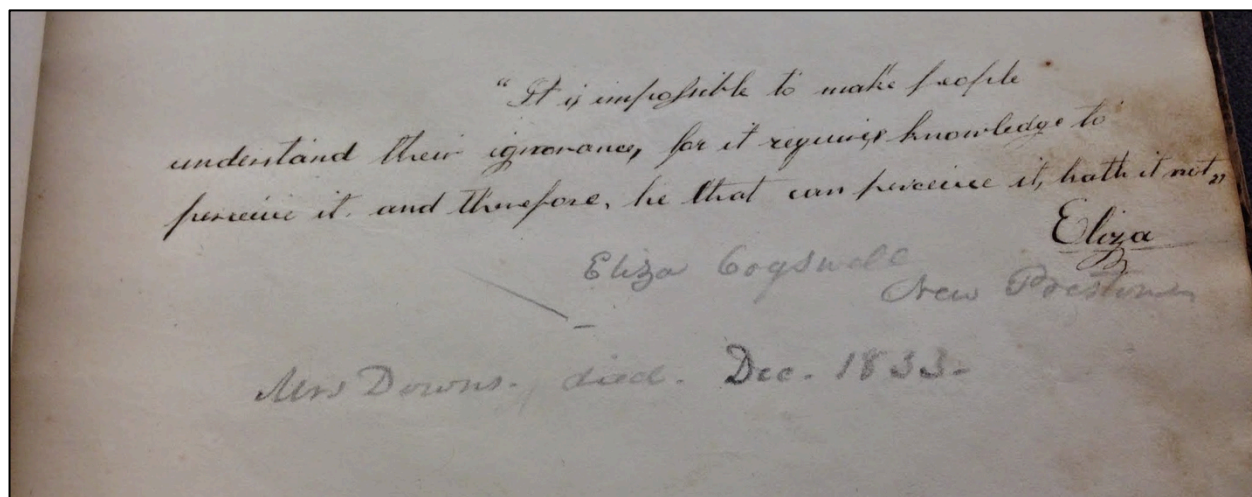 "It is impossible to make people
understand their ignorance, for it requires knowledge to
perceive it. and therefore, he that can perceive it, hath it not,"
Eliza
Eliza Cogswell
New Preston
Mrs Downs. died. Dec. 1833.